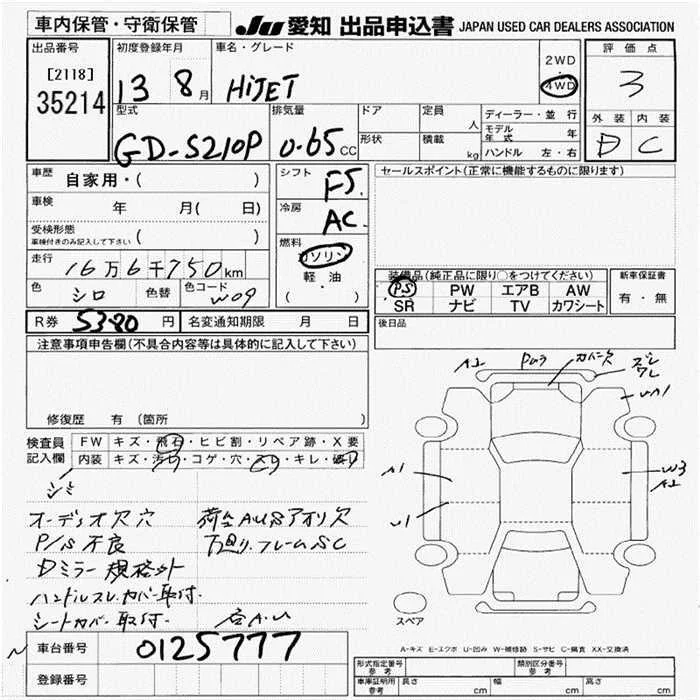 車内保管・守衛保管
JU 愛知 出品申込書 JAPAN USED CAR DEALERS ASSOCIATION
出品番号
[2118]
35214
初度登録年月
13 8月
車名・グレード
HiJET
2WD
・
4WD
評価点
3
外装 内装
D C
型式
GD-S210P
排気量
0.65 CC
ドア
形状
定員
人
積載
kg
ディーラー・並行
モデル年式 年
ハンドル 左・右
車歴 自家用・( )
車検 年 月( 日)
受検形態
車検付きのみ記入して下さい ( )
走行
16万6千750km
色
シロ
色替
色コード
W09
シフト
F5
冷房
AC
燃料
ガソリン
・
軽油
( )
セールスポイント(正常に機能するものに限ります)
装備品(純正品に限り○をつけてください)
PS PW エアB AW
SR ナビ TV カワシート
新車保証書
有・無
R券 5380円
名変通知期限 月 日
後日品
注意事項申告欄(不具合内容等は具体的に記入して下さい)
修復歴 有 (箇所 )
検査員記入欄
FW キズ・飛石・ヒビ割・リペア跡・X要
内装 キズ・汚れ・コゲ・穴・スレ・キレ・破れ
シミ
オーディオ欠 穴
P/S 不良
Dミラー 規格外
ハンドルスレ カバー取付.
シートカバー取付.
荷台AUSアオリ欠
下廻り.フレームSC
各A.U
A2
カバー欠
ズレ
ワレ
A1
W3
A2
スペア
A-キズ E-エクボ U-凹み W-補修跡 S-サビ C-腐食 XX-交換済
車台番号 0125777
登録番号
形式指定番号
参考
類別区分番号
参考
車庫証明用
参考
長さ cm
幅 cm
高さ cm